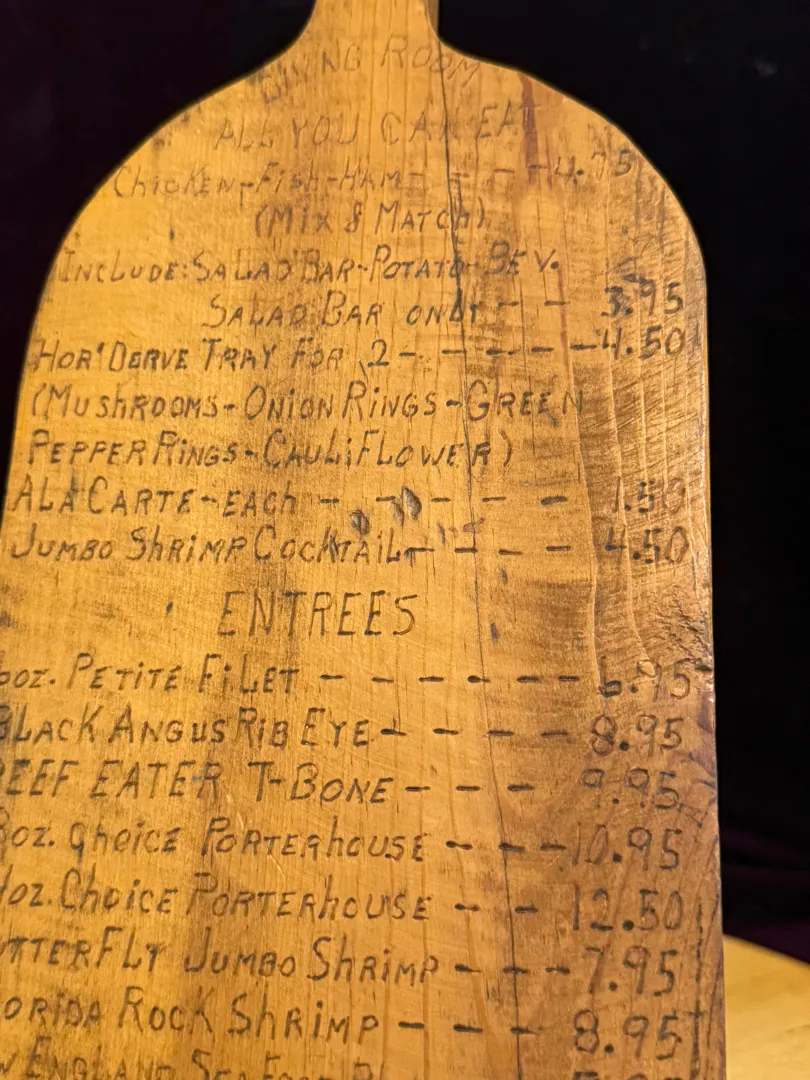 DINING ROOM
ALL YOU CAN EAT
ChicKEN-Fish-HAM - - - - 4.75
(Mix & MATCh)
INCLUDE: SALAD BAR-POTATO-BEV.
SALAD BAR ONLY - - 3.95
HOR'DERVE TRAY FOR 2 - - - - - 4.50
(MUShROOMS-ONION RINGS-GREEN
PEPPER RINGS-CAULiFLOWER)
ALA CARTE-EACh - - - - - 1.50
JUMBO ShRIMP COCKTAIL - - - - 4.50
ENTREES
oz. PETITE FiLET - - - - - - 6.95
BLACK ANGUS RIB EYE - - - - - 8.95
BEEF EATER T-BONE - - - 9.95
oz. ChoicE PORTERhOUSE - - - 10.95
oz. ChoiCE PORTERhOUSE - - 12.50
TTERFLY JUMBO ShRiMP - - - 7.95
ORIDA ROCK ShRiMP - - - 8.95
ENGLAND SEAFOOD